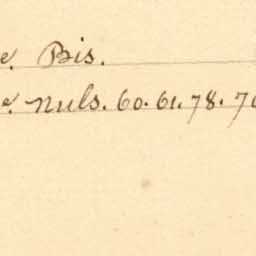 e. Bis.
a. nuls. 60. 61. 78. 7